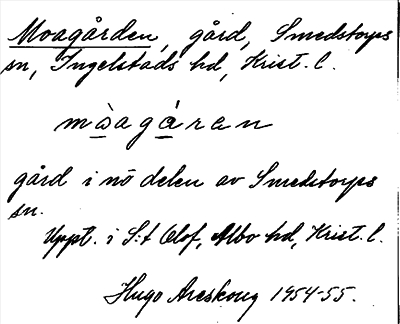 Moagården, gård, Smedstorps
sn, Ingelstads hd, Krist. l.
mòagáren
gård i nö delen av Smedstorps
sn.
Uppt. i S:t Olof, Albo hd, Krist. l.
Hugo Areskoug 1954-55.